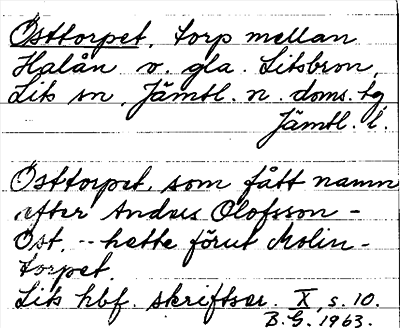 Östtorpet, torp mellan
Halån o. gla. Litsbron,
Lits sn, Jämtl. n. doms. tg,
Jämtl. l.
Östtorpet, som fått namn
efter Anders Olofsson -
Öst, -- hette förut Molin-
torpet.
Lits hbf. skriftser. X, s. 10.
B.G. 1963.